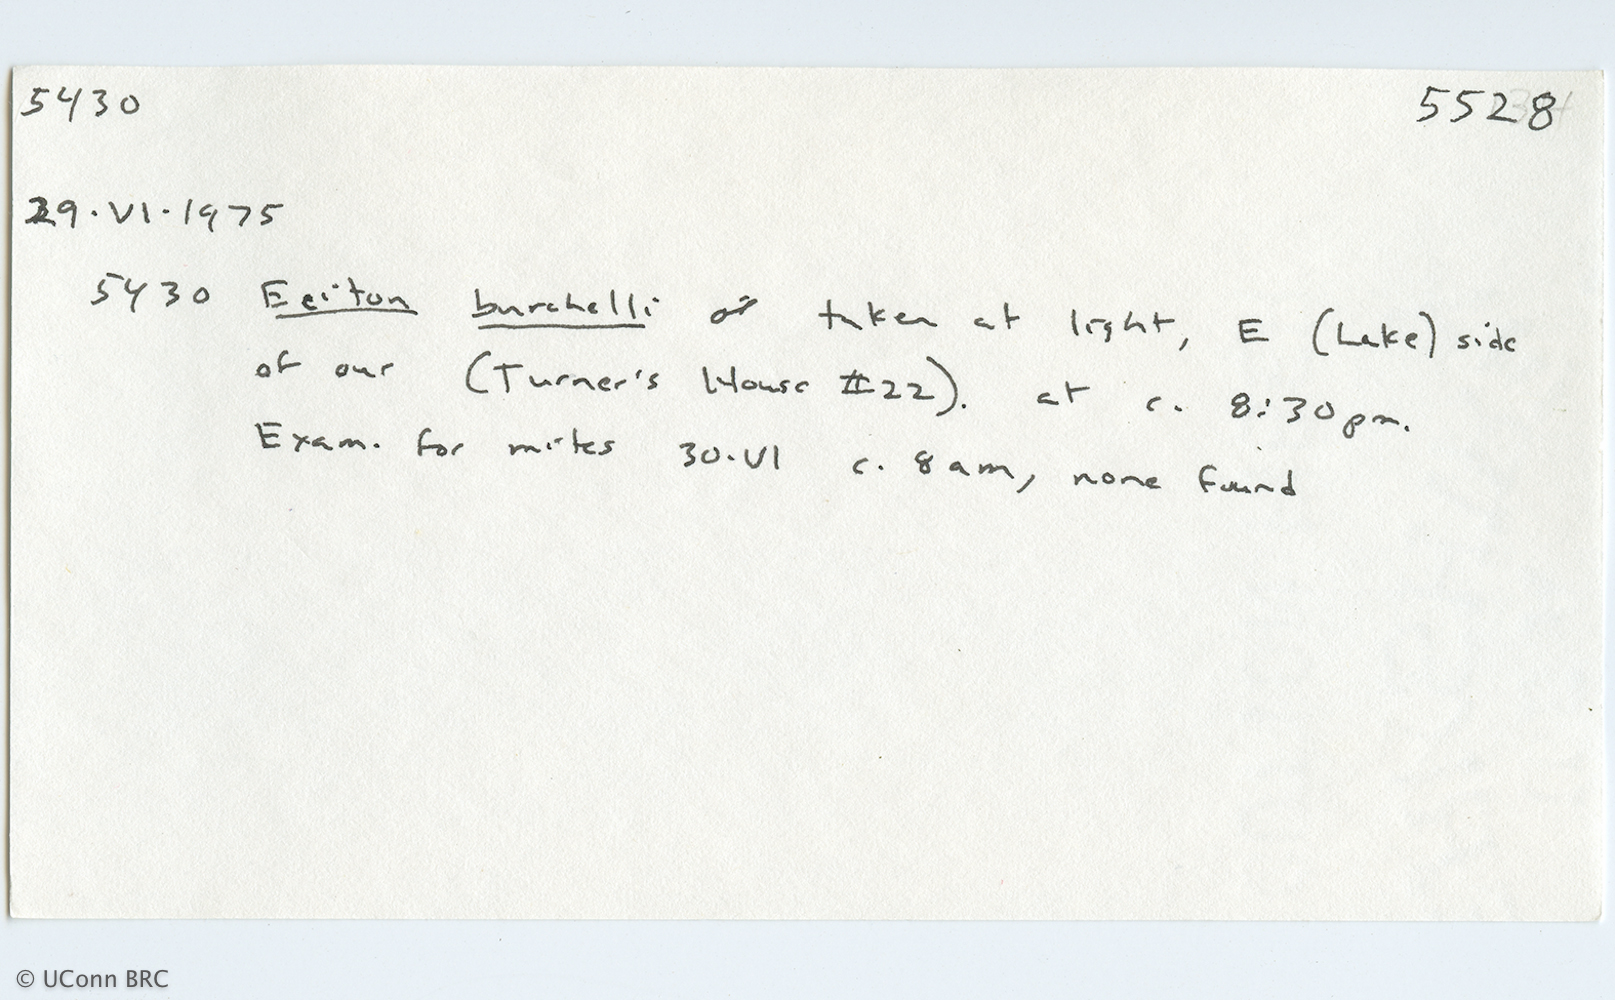 5430 5528
29·VI·1975
5430 Eciton burchelli ♂ taken at light, E (Lake) side
of our (Turner's House #22). at c. 8:30pm.
Exam. for mites 30·VI c. 8am, none found
© UConn BRC